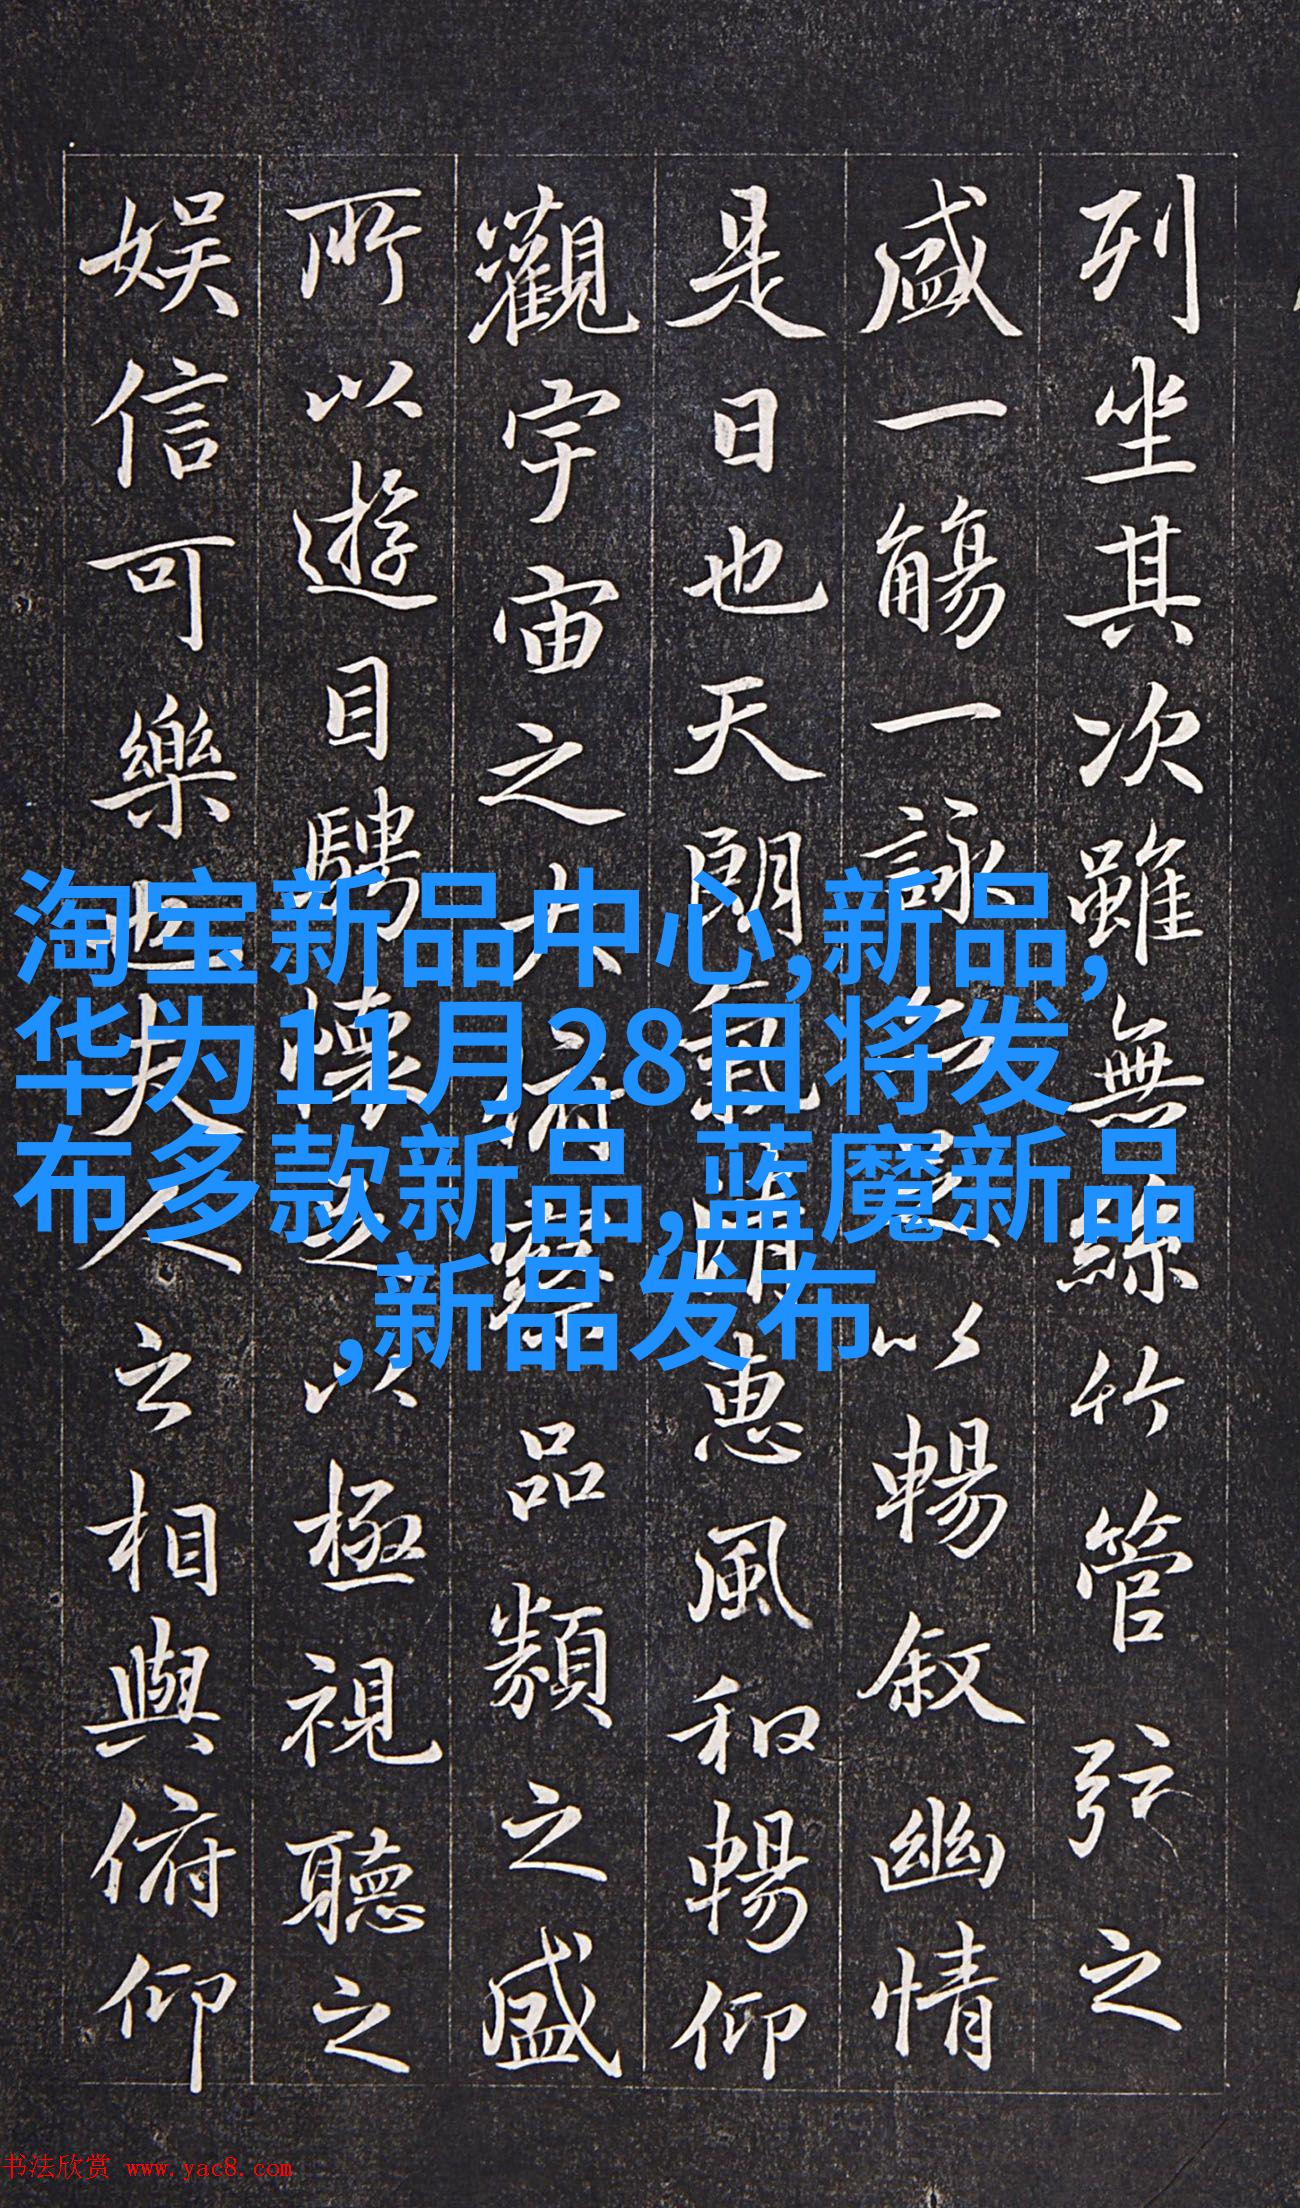 列坐其次雖無絲竹管弦之
盛一觴一詠亦足以暢叙幽情
是日也天朗氣清惠風和暢仰
觀宇宙之大俯察品類之盛
所以遊目騁懷足以極視聽之
娱信可樂也夫人之相與俯仰
淘宝新品中心,新品,
华为11月28日将发
布多款新品,蓝魔新品
,新品发布
书法欣赏 www.yac8.com